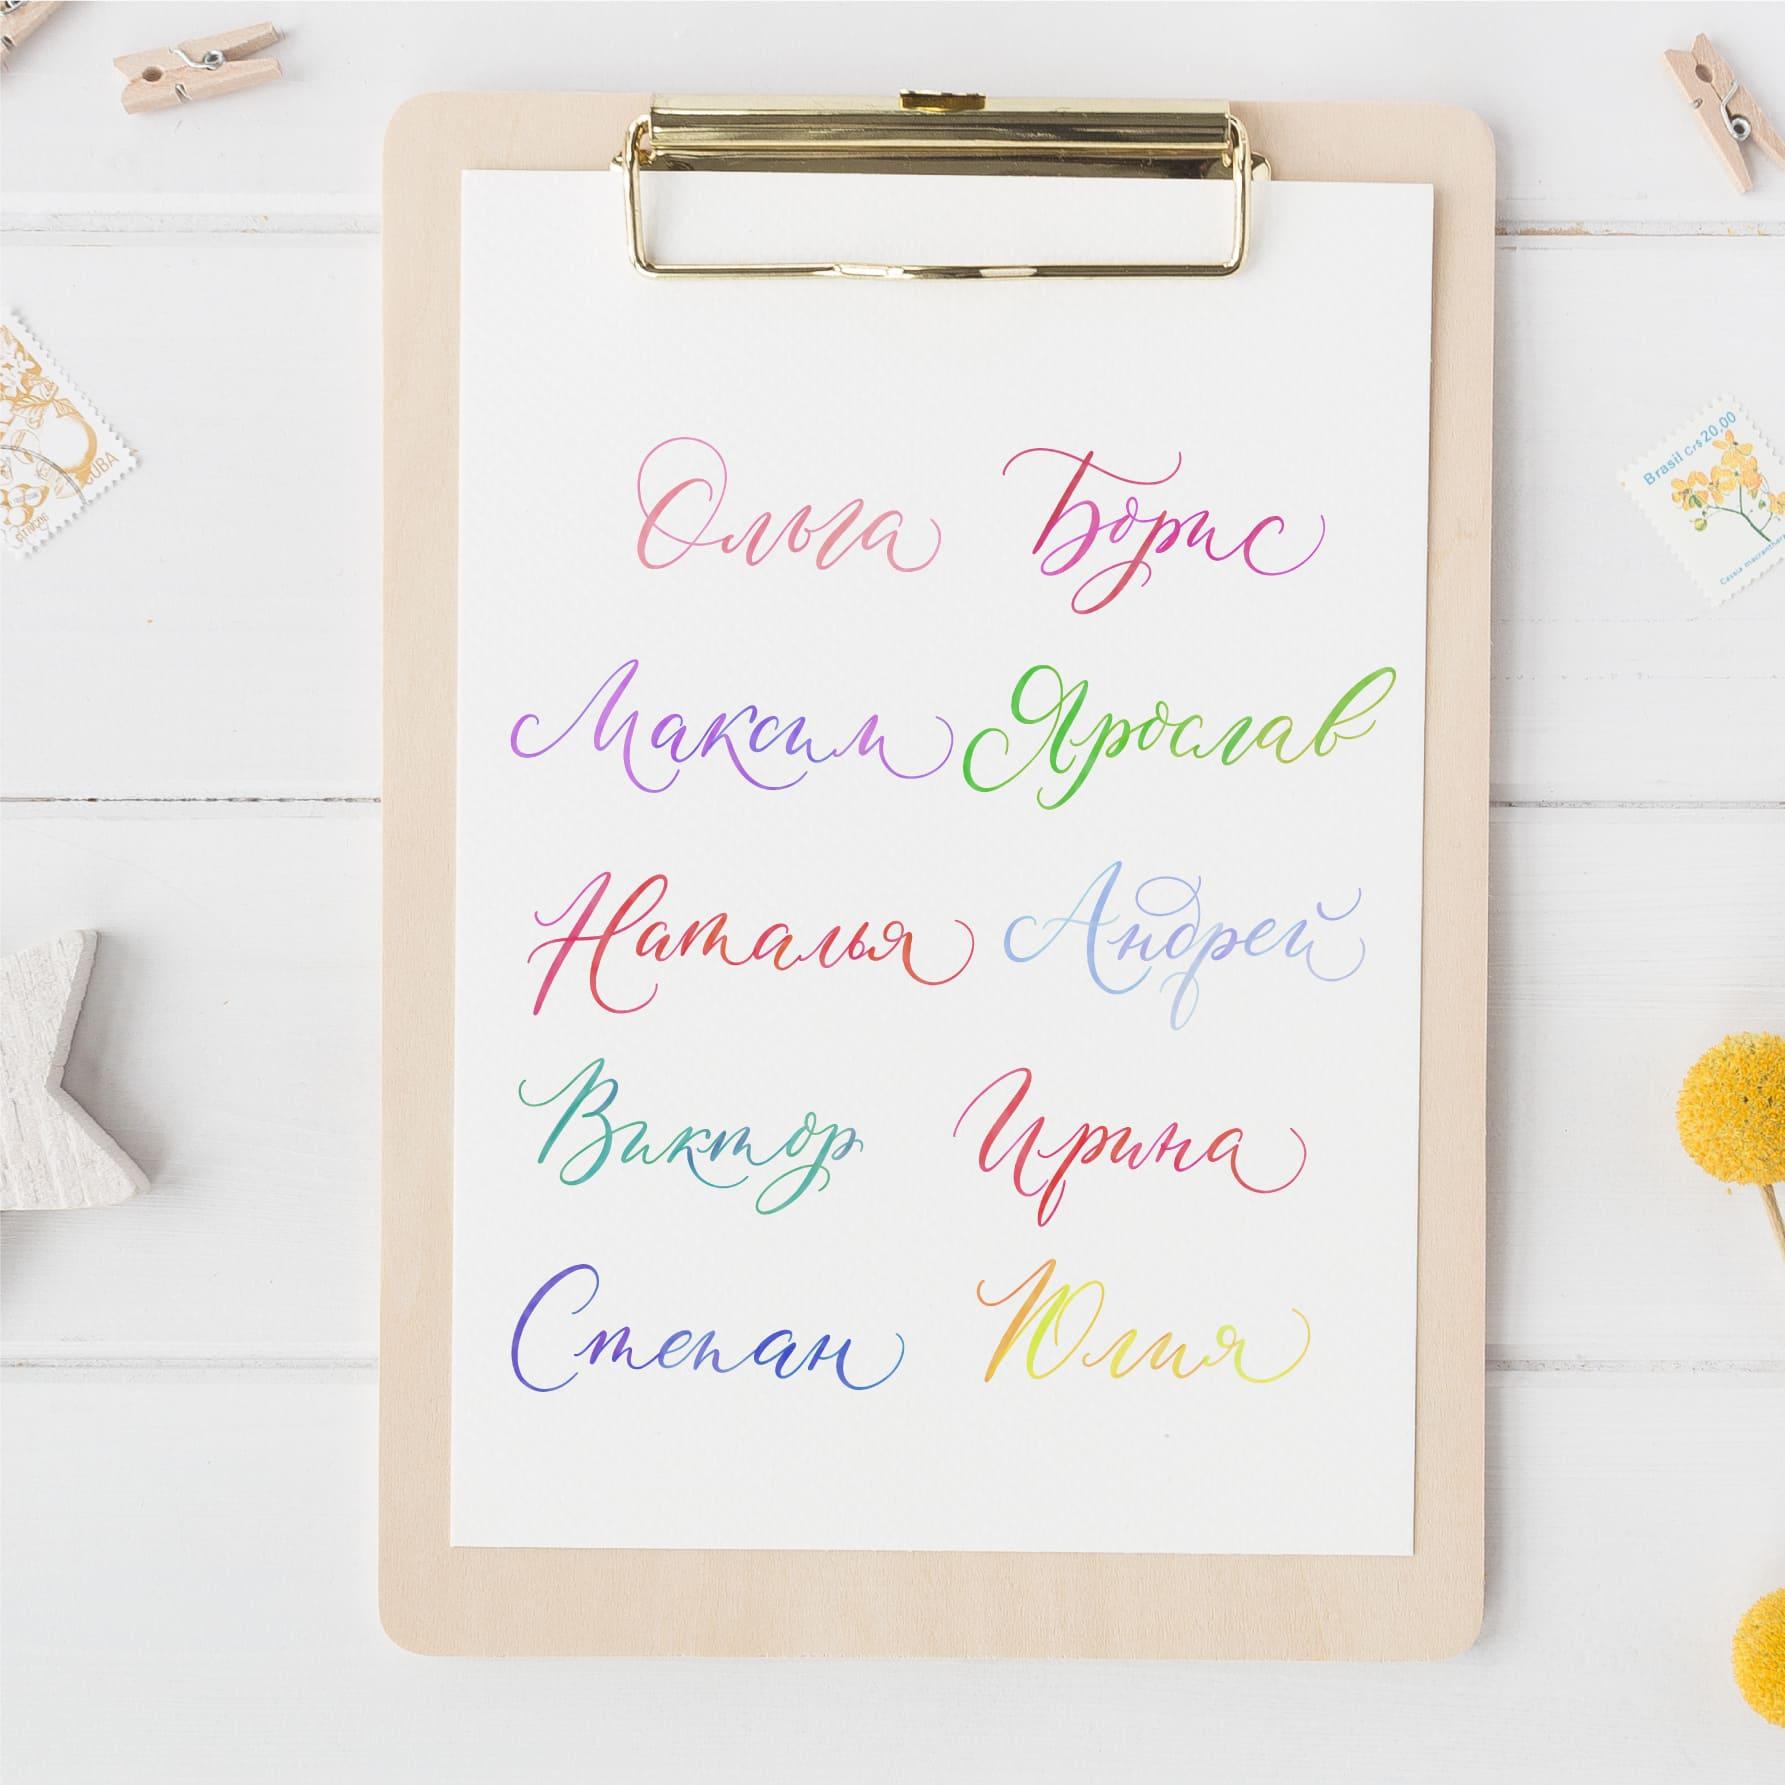 Ольга Борис
Максим Ярослав
Наталья Андрей
Виктор Ирина
Степан Юлия
CUBA
Brasil Cr$ 20,00
Cassia macranthera